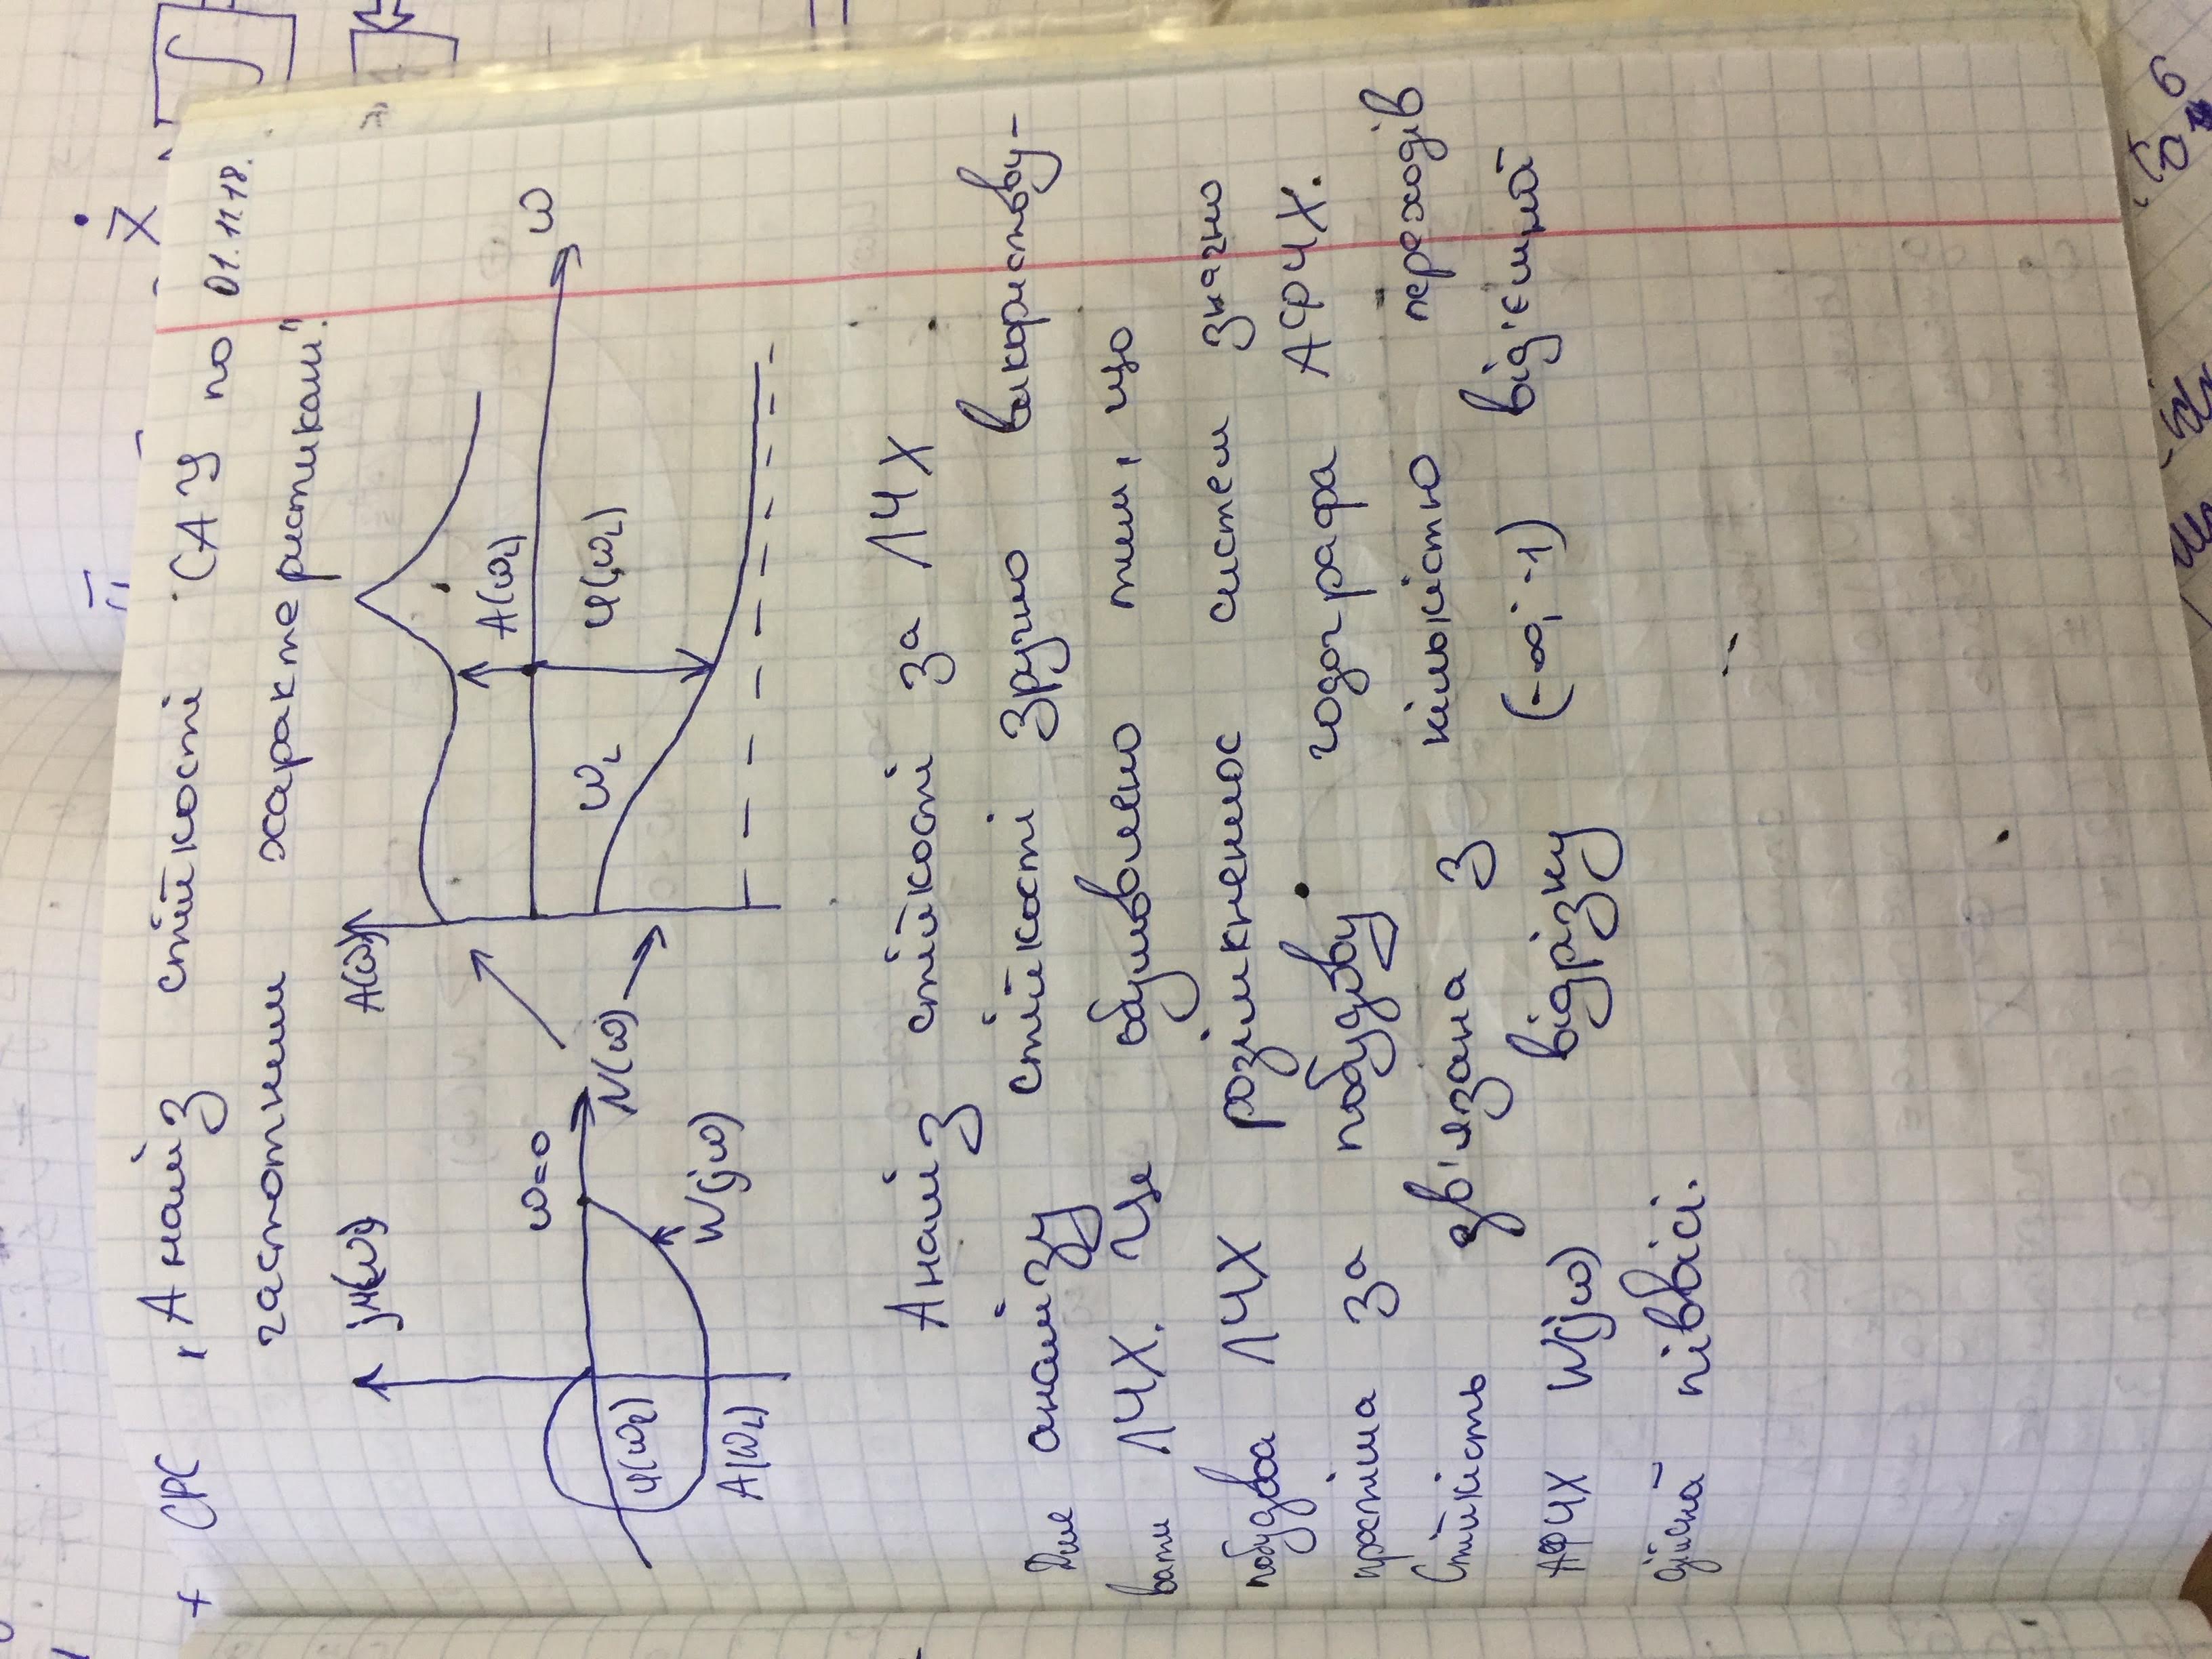 + СРС „Аналіз стійкості САУ по 01.11.18.
частотним характеристикам".
A(ω)
ω=0
A(ω₂)
ω
N(ω)
ω₂
φ(ω₂)
φ(ω₂)
W(jω)
A(ω₂)
Аналіз стійкості за ЛЧХ
Для аналізу стійкості зручно використову-
вати ЛЧХ. Це обумовлено тим, що
побудова ЛЧХ розімкнених систем значно
простіша за побудову годографа АФЧХ.
Стійкість зв'язана з кількістю переходів
АФЧХ W(jω) відрізку (-∞; -1) від'ємной
дійсной піввісі.
Ẋ
∫